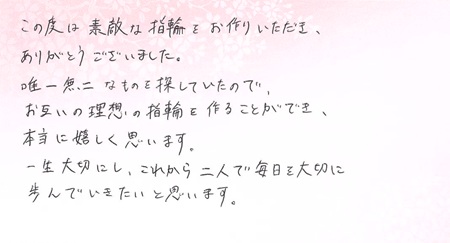 この度は素敵な指輪をお作りいただき、
ありがとうございました。
唯一無二なものを探していたので、
お互いの理想の指輪を作ることができ、
本当に嬉しく思います。
一生大切にし、これから二人で毎日を大切に
歩んでいきたいと思います。